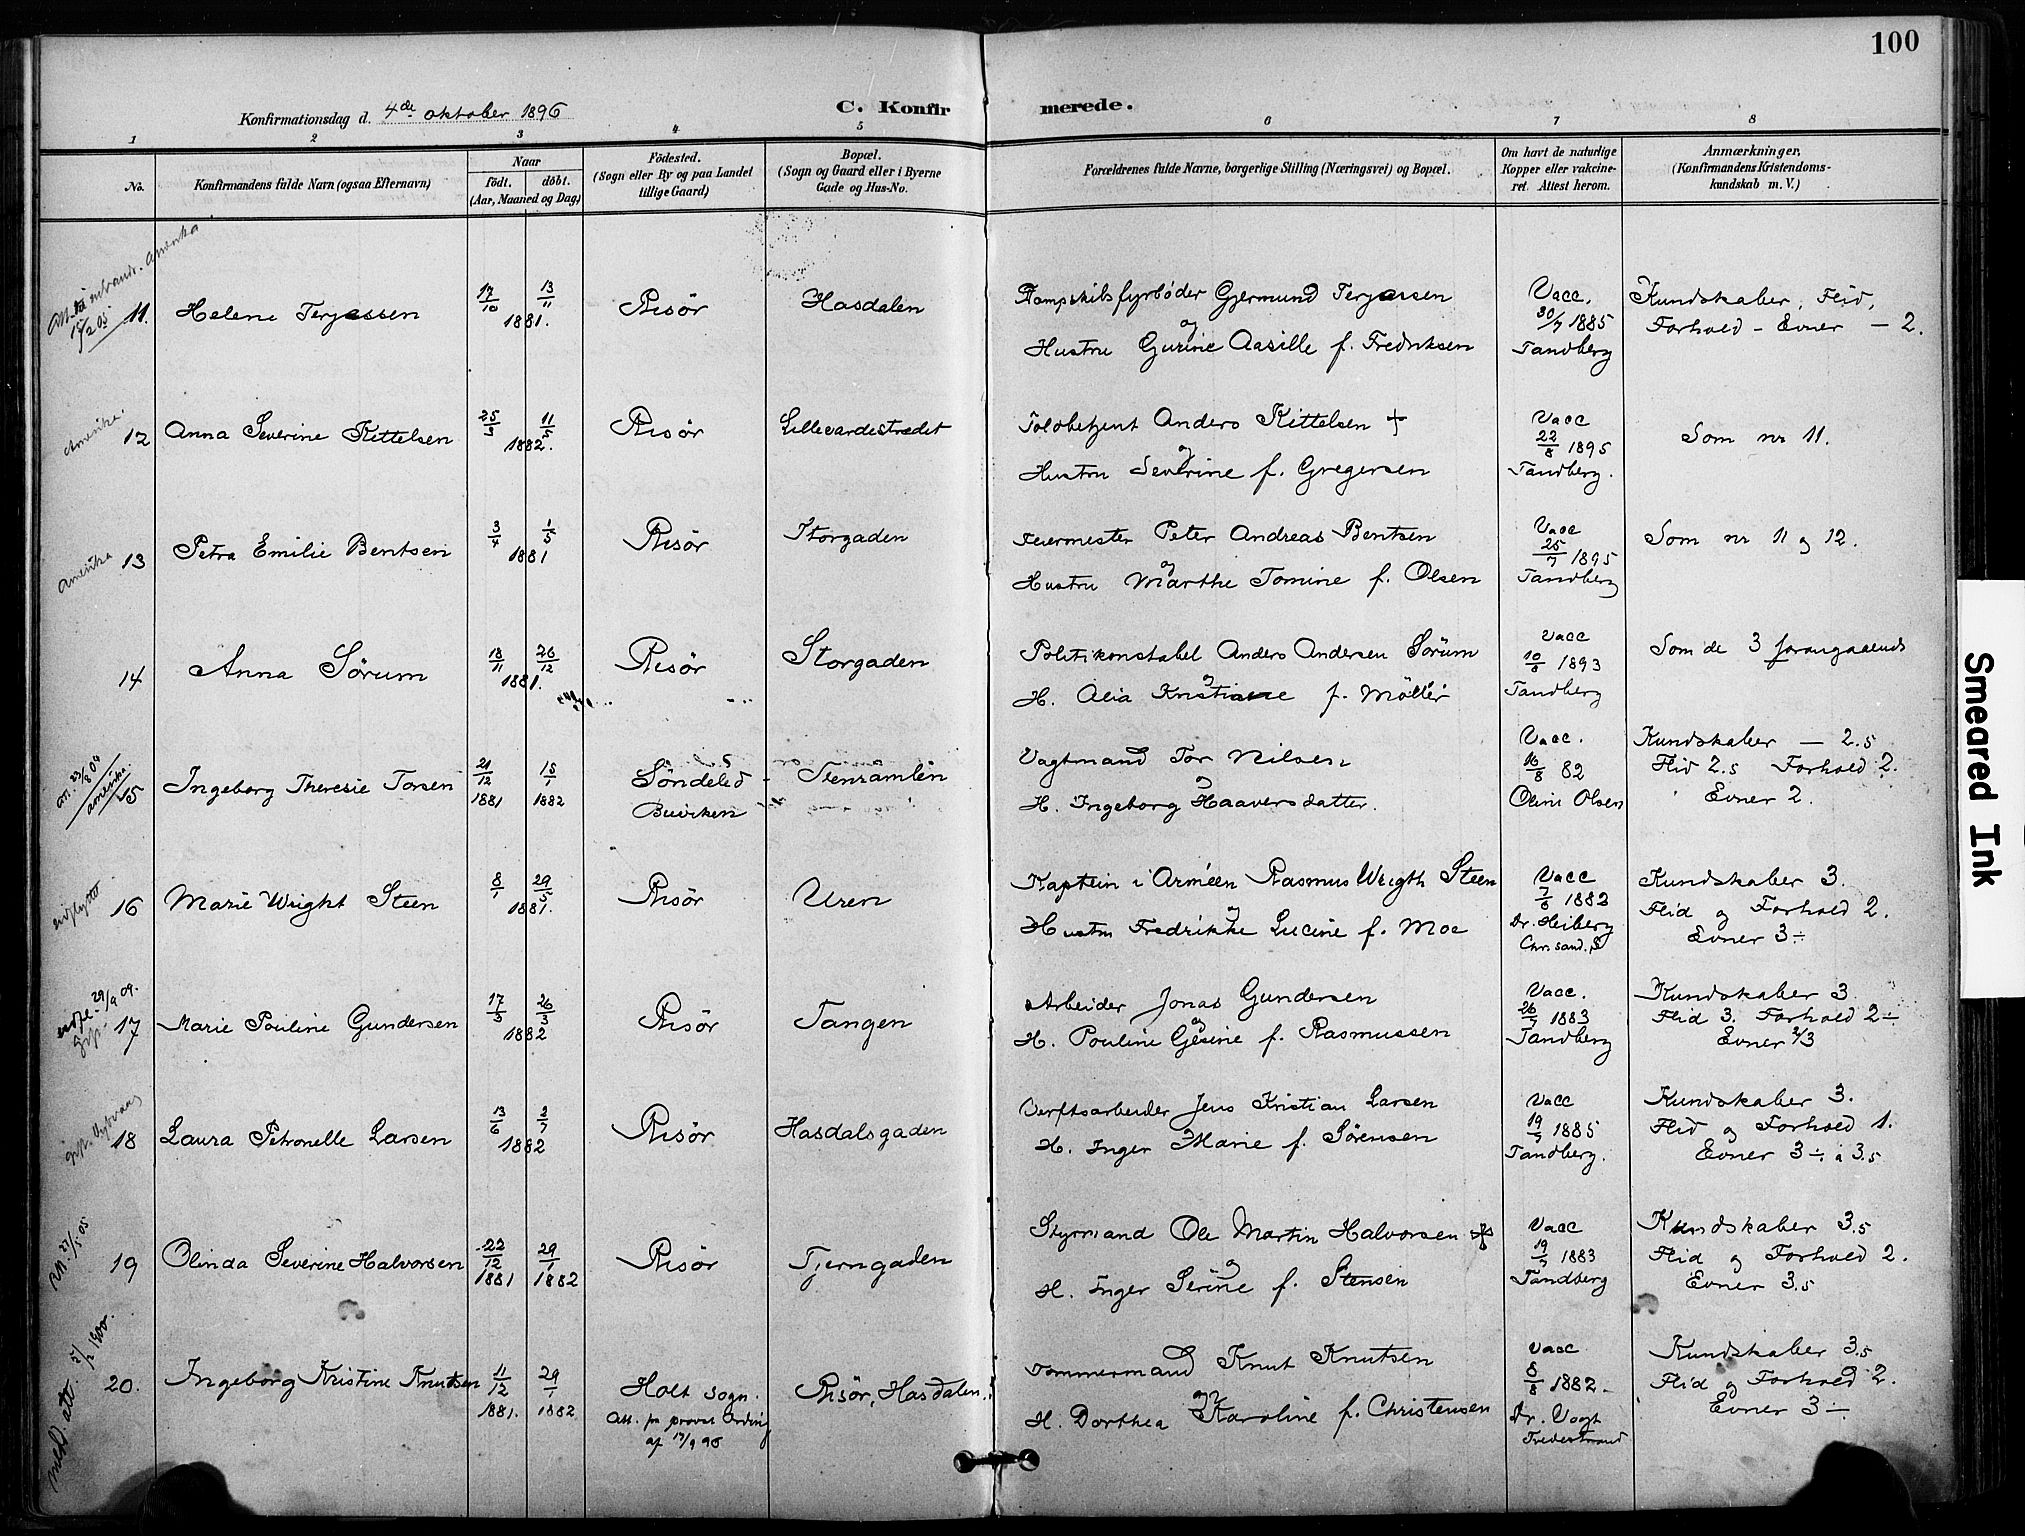 100
Konfirmationsdag d. 4de oktober 1896
C. Konfirmerede.
1 2 3 4 5 6 7 8
No.
Konfirmandens fulde Navn (ogsaa Efternavn)
Naar
födt. döbt.
(Aar, Maaned og Dag)
Födested.
(Sogn eller By og paa Landet
tillige Gaard)
Bopæl.
(Sogn og Gaard eller i Byerne
Gade og Hus-No.
Forældrenes fulde Navne, borgerlige Stilling (Næringsvei) og Bopæl.
Om havt de naturlige
Kopper eller vakcine-
ret. Attest herom.
Anmærkninger,
(Konfirmandens Kristendoms-
kundskab m. V.)
Amerika
11. Helene Terjessen 17/10 13/11 1881. Risør Hasdalen
Dampskibsfyrbøder Gjermund Terjessen
og
Hustru Gurine Aasille f. Fredriksen
Vacc.
30/7 1885
Tandberg
Kundskaber, Flid,
Forhold - Evner - 2.
Amerika.
12 Anna Severine Kittelsen 25/3 11/5 1882. Risør Lillevardestrædet
Toldbetjent Anders Kittelsen +
og
Hustru Severine f. Gregersen
Vacc
22/8 1895
Tandberg.
Som nr 11.
Amerika
13 Petra Emilie Bentsen 3/4 1/5 1881 Risør Storgaden
Feiermester Peter Andreas Bentsen
og
Hustru Marthe Tomine f. Olsen
Vacc
25/7 1895
Tandberg
Som nr 11 og 12.
14 Anna Sørum 18/11 26/12 1881. Risør Storgaden
Politikonstabel Anders Andersen Sörum
og
H. Alia Kristiane f. Möller
Vacc
10/8 1893
Tandberg
Som de 3 foregaaende
att. 23/8 04
amerika.
15 Ingeborg Theresie Torsen 21/12 1881 15/1 1882 Söndeled Stenramlen
Buviken
Vagtmand Tor Nilsen
og
H. Ingeborg Haaversdatter.
Vacc.
16/8 82
Olini Olsen
Kundskaber - 2.5
Flid 2.5 Forhold 2.
Evner 2.
udflyttet
16 Marie Wright Steen 8/1 29/5 1881. Risør Uren
Kaptein i Arméen Rasmus Wrigth Steen
og
Hustru Fredrikke Lucine f. Moe
Vacc
7/6 1882
Dr. Heiberg
Chr. sand. S
Kundskaber 3.
Flid og Forhold 2.
Evner 3÷
udfl. 29/9 09.
17 Marie Pouline Gundersen 17/3 26/3 1882 Risør Tangen
Arbeider Jonas Gundersen
og
H. Pouline Gesine f. Rasmussen
Vacc.
26/7 1883
Tandberg
Kundskaber 3
Flid 3. Forhold 2÷
Evner 2/3
18 Laura Petronelle Larsen 13/6 2/7 1882 Risør Hasdalsgaden
Verftsarbeider Jens Kristian Larsen
H. Inger Marie f. Sørensen
Vacc
19/7 1885
Tandberg.
Kundskaber 3.
Flid og Forhold 1.
Evner 3÷ a 3.5
att. 27/5 05
19 Olinda Severine Halvorsen 22/12 1881 29/1 1882 Risør Tjerngaden
Styrmand Ole Martin Halvorsen +
og
H. Inger Serine f. Stensen
Vacc
19/7 1883
Tandberg
Kundskaber 3.5
Flid og Forhold 2.
Evner 3.5
meld. att. 5/2 1900.
20. Ingeborg Kristine Knutsen 11/12 1881. 29/1 1882 Holt sogn. Risør, Hasdalen.
Att. fra provst Ording
af 17/9 96
Tømmermand Knut Knutsen
og
H. Dorthea Karoline f. Christensen
Vacc
8/8 1882
Dr. Vogt
Tvedestrand
Kundskaber 3.5
Flid og Forhold 2.
Evner 3÷
Smeared Ink